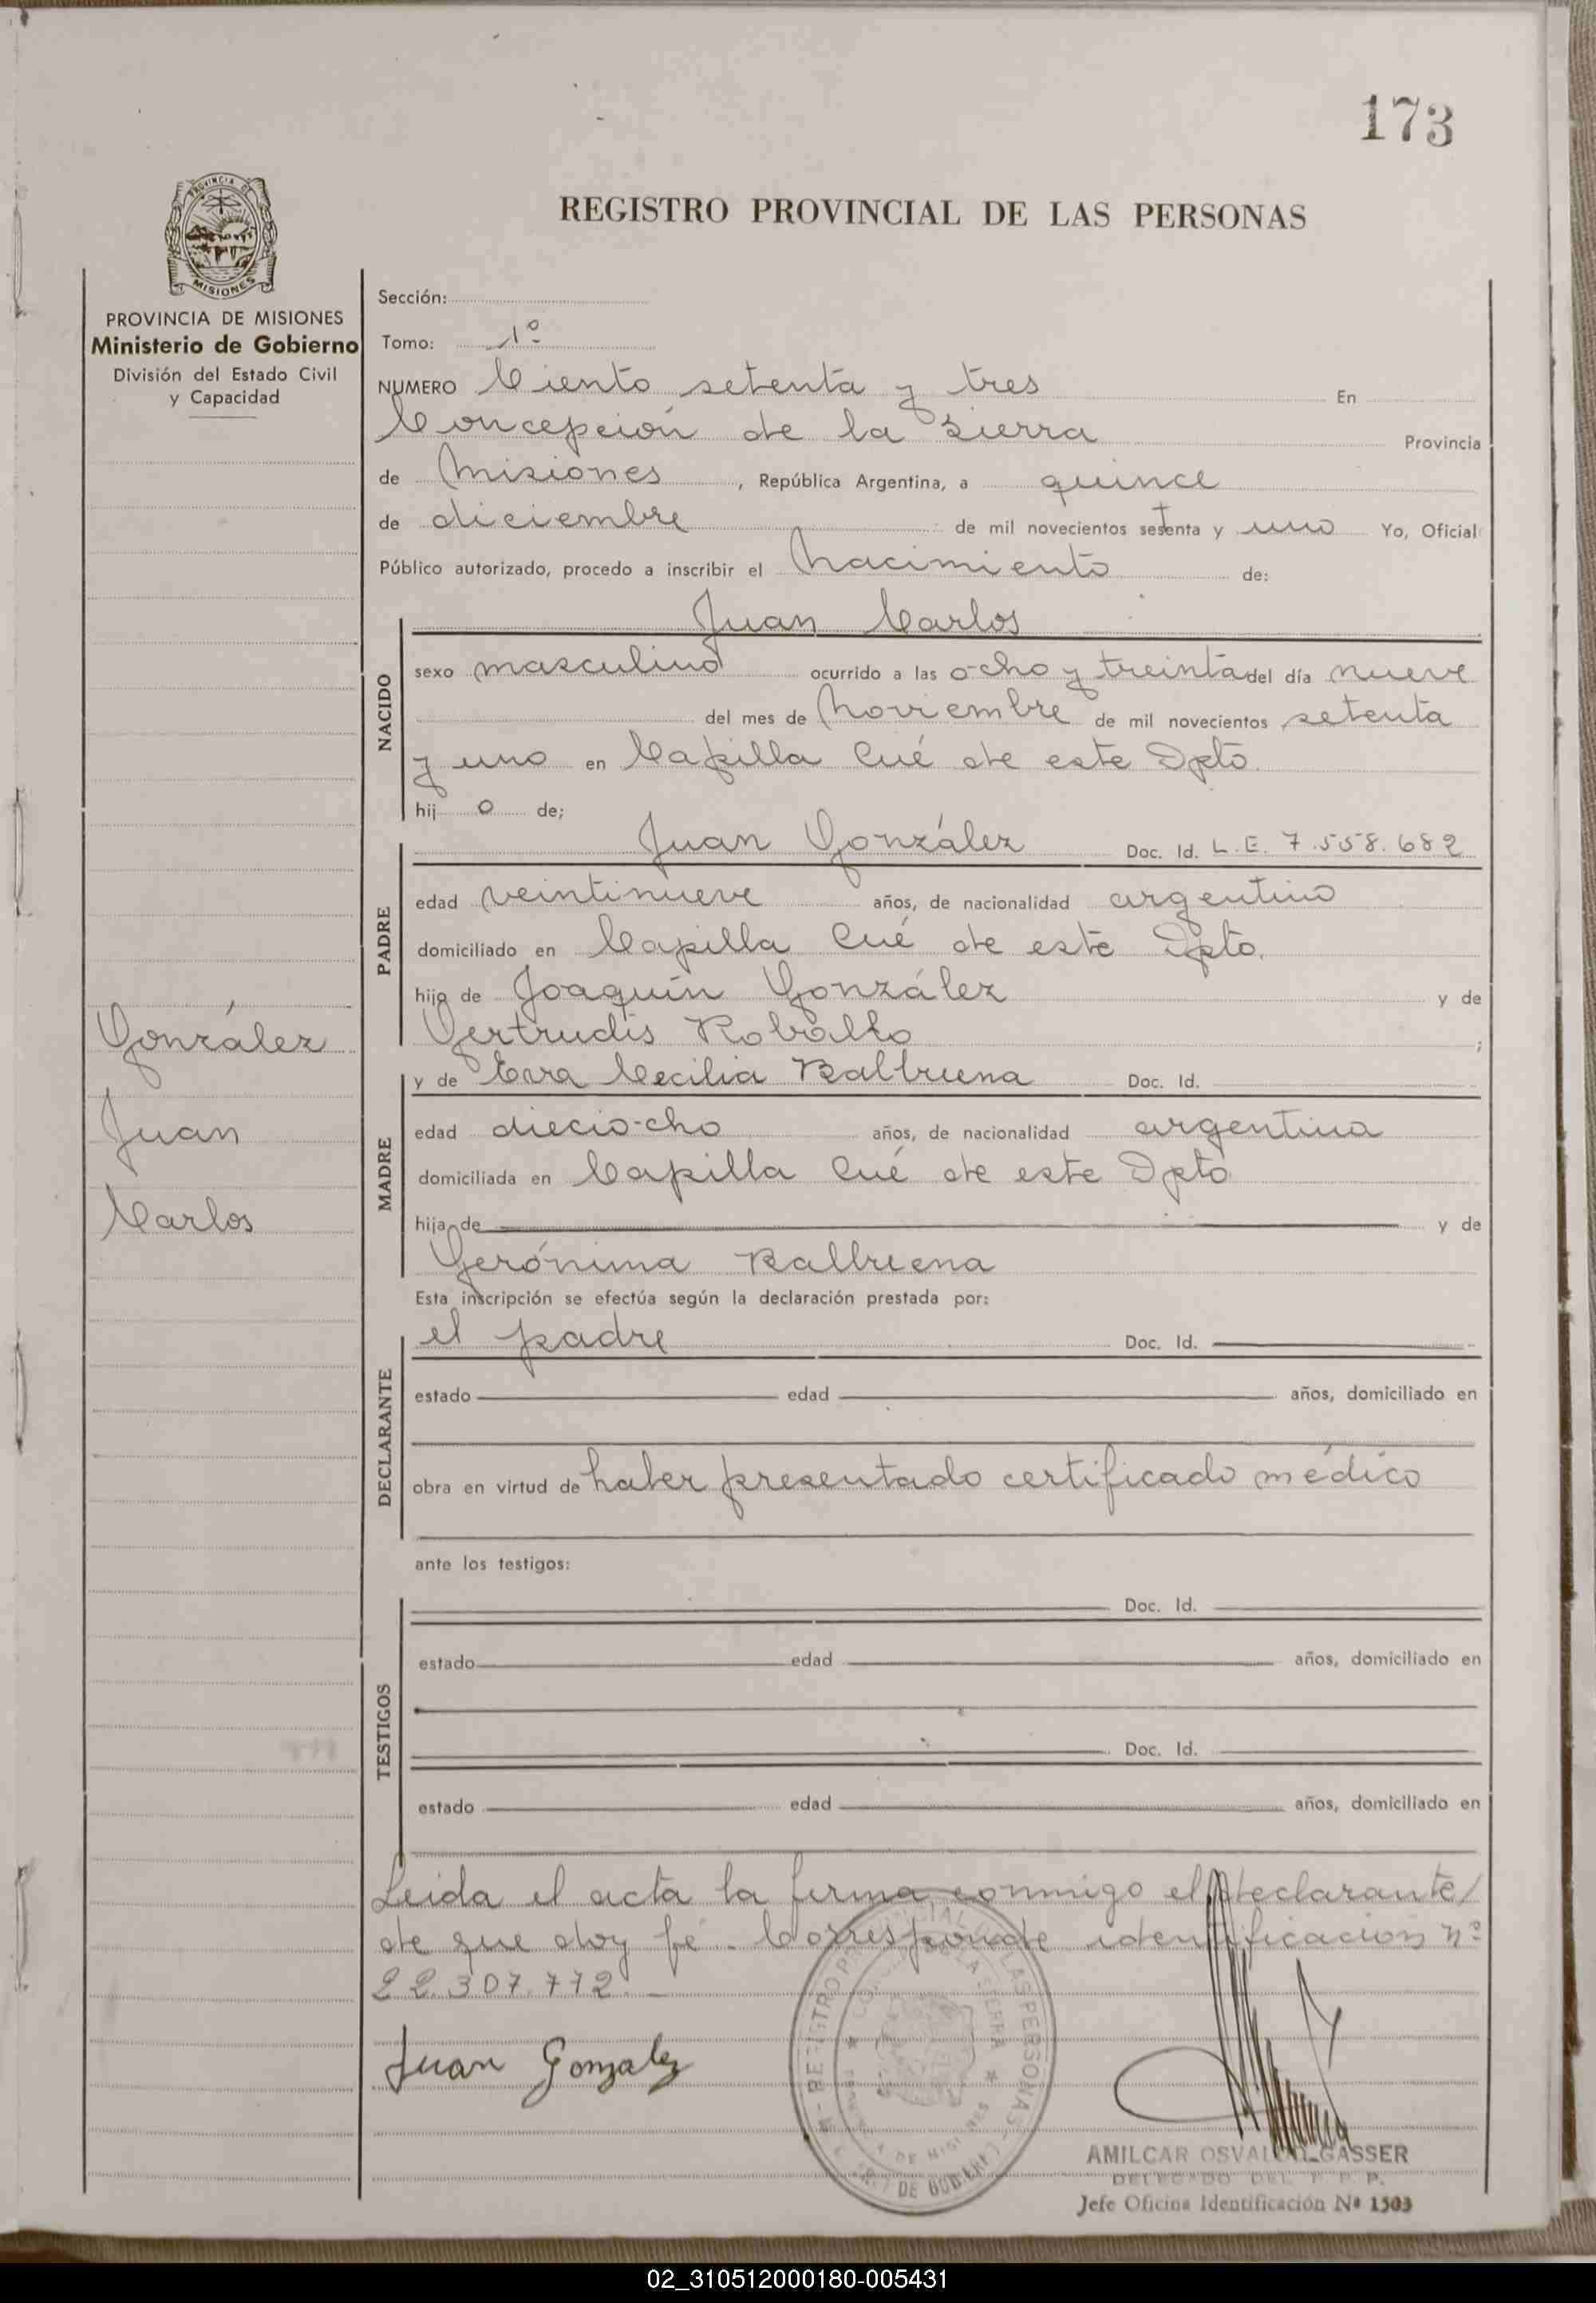 173
PROVINCIA DE
MISIONES
REGISTRO PROVINCIAL DE LAS PERSONAS
PROVINCIA DE MISIONES
Ministerio de Gobierno
División del Estado Civil
y Capacidad
González
Juan
Carlos
Sección:
Tomo: 1º
NUMERO Ciento setenta y tres En
Concepción de la Sierra Provincia
de Misiones, República Argentina, a quince
de diciembre de mil novecientos setenta y uno Yo, Oficial
Público autorizado, procedo a inscribir el Nacimiento de:
Juan Carlos
NACIDO
sexo masculino ocurrido a las ocho y treinta del día nueve
del mes de Noviembre de mil novecientos setenta
y uno en Capilla Cué de este Dpto.
hijo de;
PADRE
Juan González Doc. Id. L.E. 7.558.682
edad veintinueve años, de nacionalidad argentino
domiciliado en Capilla Cué de este Dpto.
hijo de Joaquín González y de
Gertrudis Roballo ;
MADRE
y de Eva Cecilia Balbuena Doc. Id.
edad diecio-cho años, de nacionalidad argentina
domiciliada en Capilla Cué de este Dpto
hija de y de
Gerónima Balbuena
Esta inscripción se efectúa según la declaración prestada por:
DECLARANTE
el padre Doc. Id.
estado edad años, domiciliado en
obra en virtud de haber presentado certificado médico
ante los testigos:
TESTIGOS
Doc. Id.
estado edad años, domiciliado en
Doc. Id.
estado edad años, domiciliado en
Leida el acta la firma conmigo el declarante/
de que doy fé. Corresponde identificación nº
22.307.772.-
Juan Gonzalez
REGISTRO PROVINCIAL DE LAS PERSONAS
DE GOBIERNO
AMILCAR OSVALDO GASSER
DELEGADO DEL R. P. P.
Jefe Oficina Identificación Nº 1503
02_310512000180-005431